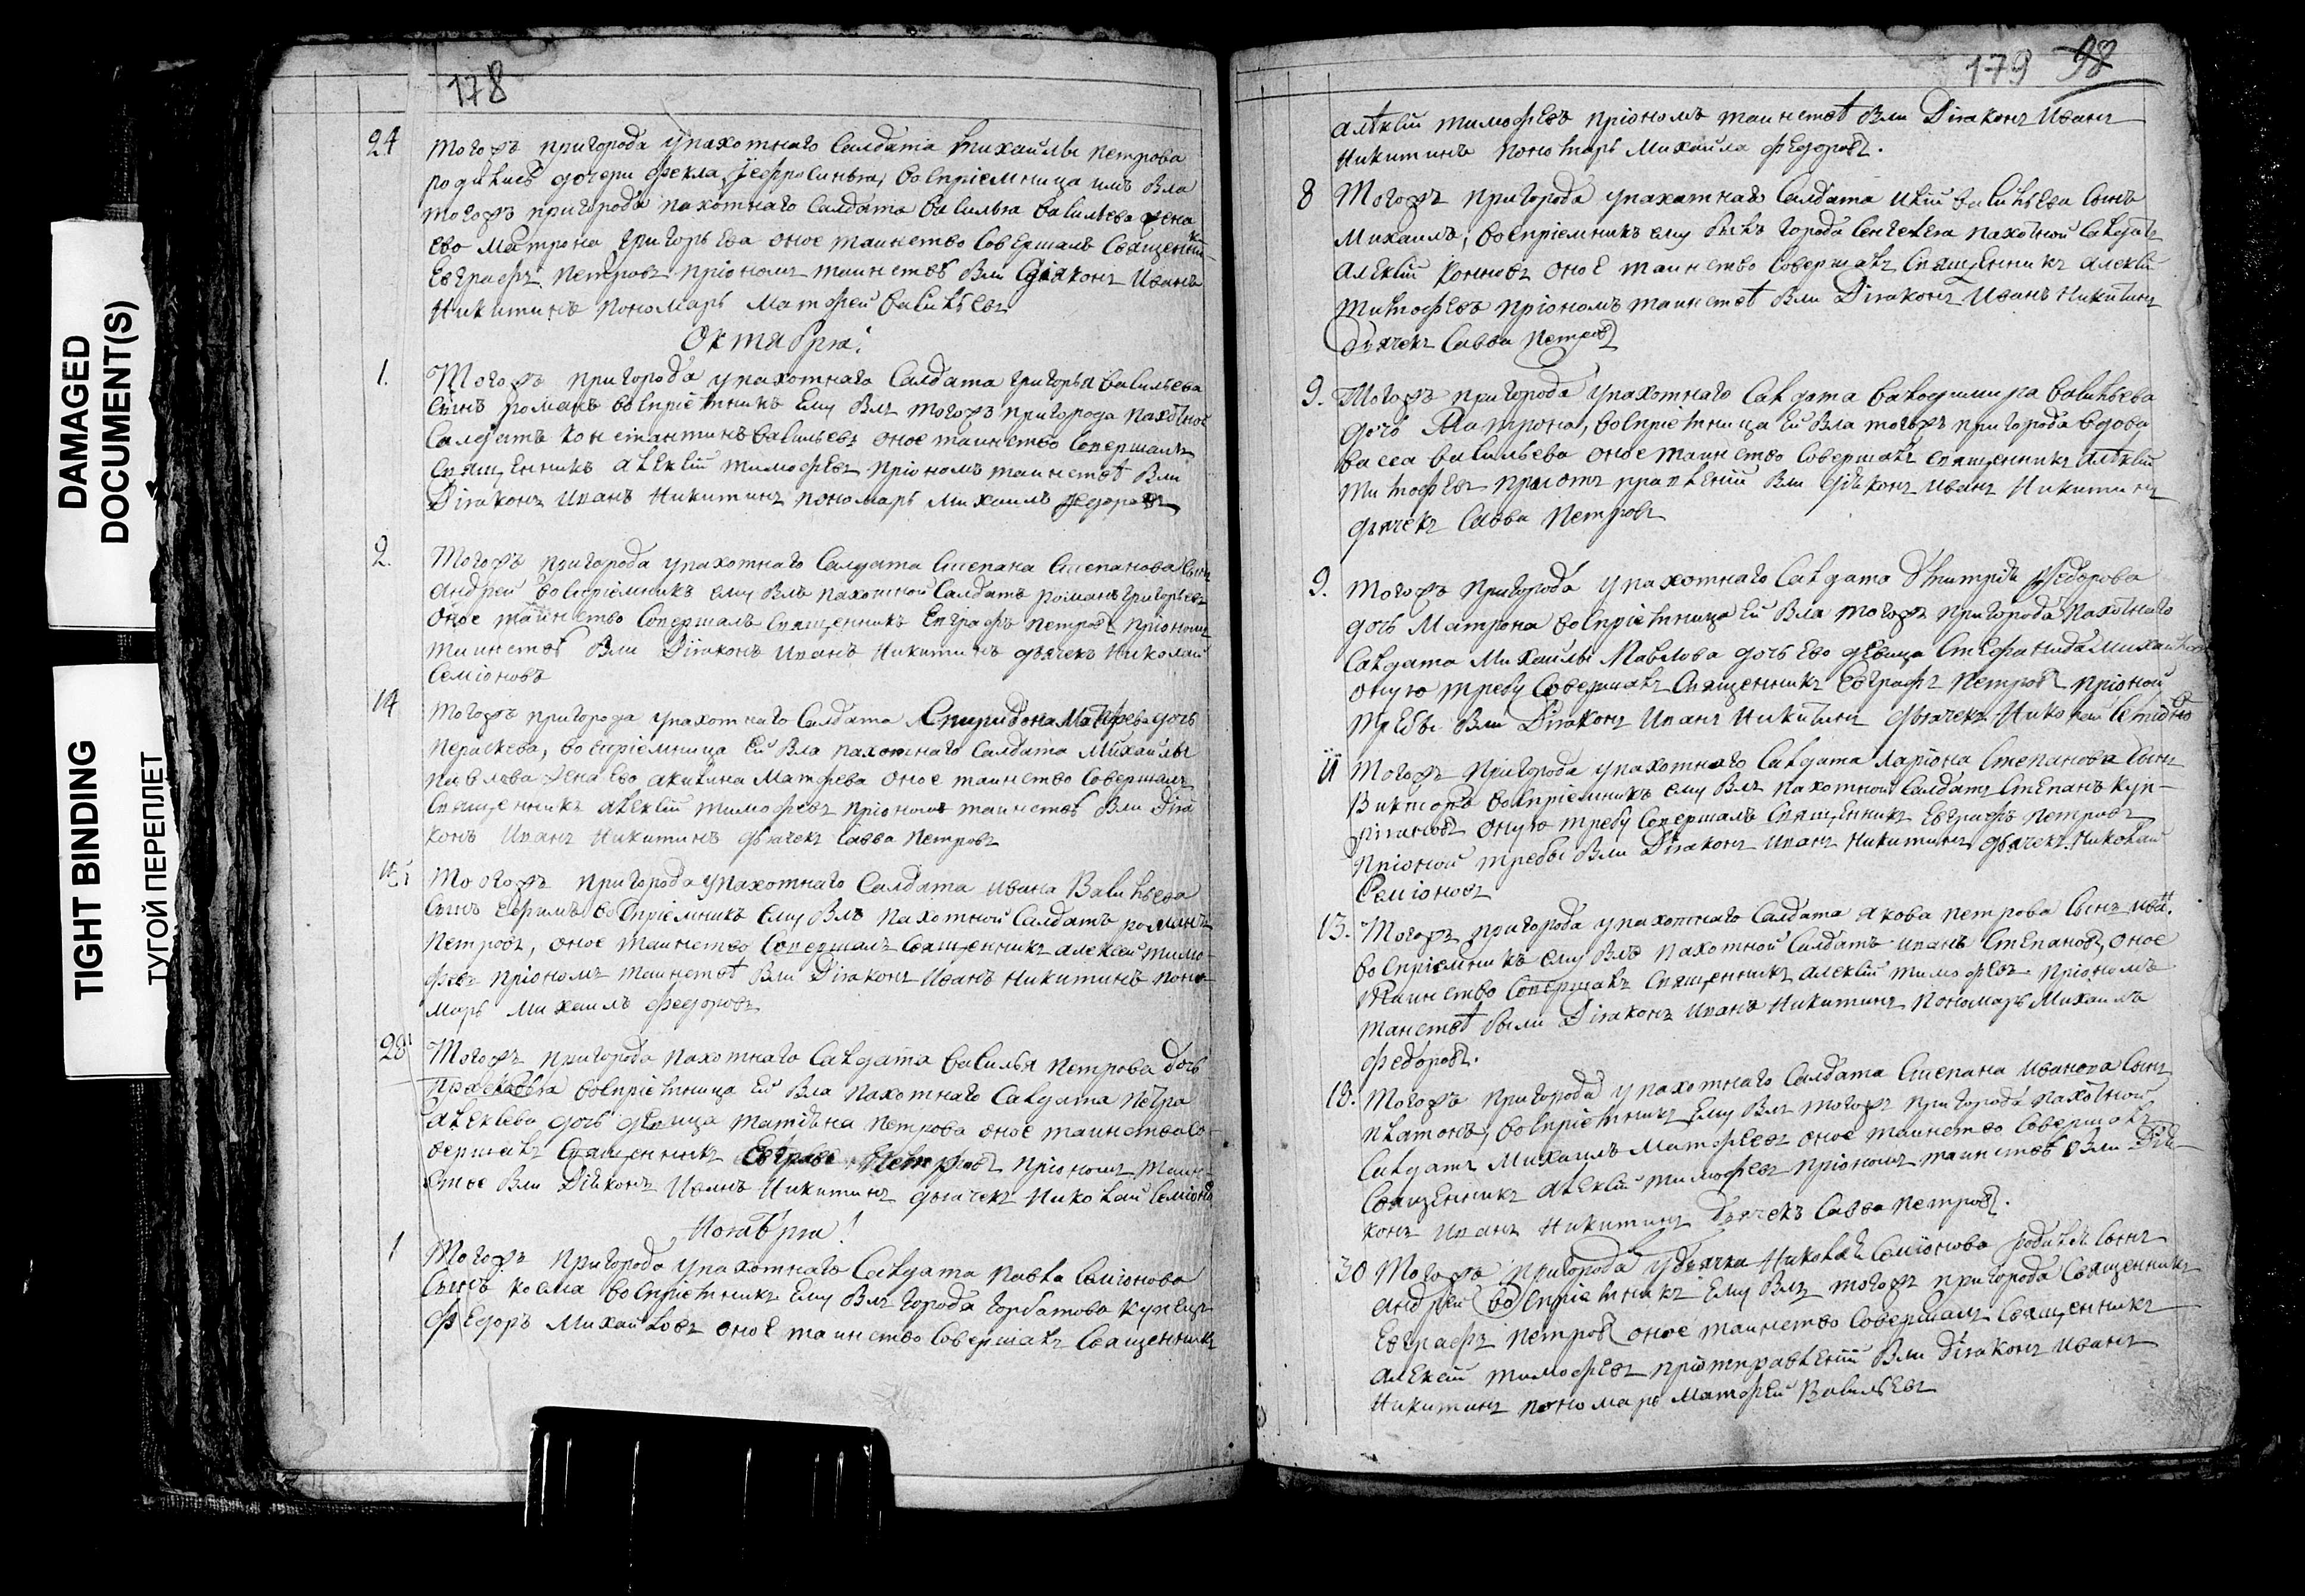 DAMAGED
DOCUMENT(S)
TIGHT BINDING
ТУГОЙ ПЕРЕПЛЕТ
178
24 Тогожъ пригорода упахотнаго Салдата Михайлы Петрова
родились дочери Фекла, Уефросинья, воспріемница имъ Бла
тогожъ пригорода пахотнаго Салдата василья васильева жена
ево Матрона григорьева оное таинство Совершалъ Священникъ
Евграфъ Петровъ пріономъ таинствѣ Бли Діяконъ Иванъ
Никитинъ Пономарь Матфей васильевъ
Октября:
1. Тогожъ пригорода упахотнаго Салдата григорья васильева
Сынъ романъ воспріемникъ Ему Блъ тогожъ пригорода пахотной
Салдатъ константинъ васильевъ оное таинство Совершалъ
Священникъ алексій тимофѣевъ пріономъ таинствѣ Бли
Діяконъ Иванъ Никитинъ пономарь Михаилъ Федоровъ
2. Тогожъ пригорода упахотнаго Салдата Степана Степанова Сынъ
андрей воспріемникъ ему Блъ пахотной Салдатъ романъ григорьевъ
Оное таинство Совершалъ Священникъ Евграфъ Петровъ пріономъ
таинствѣ Бли Діяконъ Иванъ Никитинъ дьячекъ Николай
Семіоновъ
14 Тогожъ пригорода упахотнаго Салдата Спиридона Матфева дочь
Пераскева, воспріемница Ей Бла пахотнаго Салдата Михайлы
павлова жена Ево акилина Матфева оное таинство Совершалъ
Священникъ алексій тимофѣевъ пріономъ таинствѣ Бли Діа
конъ Иванъ Никитинъ дьячекъ Савва Петровъ
Тогожъ пригорода упахотнаго Салдата ивана Васильева
Сынъ ефимъ воспріемникъ Ему Блъ пахотной Салдатъ романъ
Петровъ, оное таинство Совершалъ Священникъ алексей тимо-
фѣевъ пріономъ таинствѣ Бли Діяконъ Иванъ Никитинъ поно-
марь Михаилъ Федоровъ
28 Тогожъ пригорода пахотнаго Салдата василья Петрова дочь
воспріемница Ей Бла пахотнаго Салдата Петра
алексѣева дочь девица татіана Петрова оное таинство Со-
вершалъ Священникъ Евграфъ Петровъ пріономъ таин-
стве Бли Діяконъ Иванъ Никитинъ дьячекъ Николай Семіоновъ
Ноября!
1 Тогожъ пригорода упахотнаго Салдата Павла Семіонова
Сынъ Косма воспріемникъ Ему Блъ города горбатова купецъ
Федоръ Михайловъ оное таинство Совершалъ Священникъ
179 98
алексій тимофѣевъ пріономъ таинствѣ Бли Діяконъ Иванъ
Никитинъ пономарь Михаила Федоровъ.
8 Тогожъ пригорода упахатнаго Салдата васильева Сынъ
Михаилъ, воспріемникъ ему Былъ города пахотной Салдатъ
Алексій оное таинство Совершалъ Священникъ алексій
тимофѣевъ пріономъ таинствѣ Бли Діяконъ Иванъ Никитинъ
Дьячекъ Савва Петровъ
9. Тогожъ пригорода упахотнаго Салдата валодимира васильева
дочь Матрона, воспріемница Ей Бла тогожъ пригорода вдова
васса васильева оное таинство Совершалъ священникъ алексій
тимофѣевъ приотправленіи Бли діяконъ Иванъ Никитинъ
дьячекъ Савва Петровъ
9. Тогожъ пригорода упахотнаго Салдата Дмитрія Федорова
дочь Матрона воспріемница Ей Бла тогожъ пригорода пахотнаго
Салдата Михайлы Павлова дочь Ево девица Стефанида Михайлова
оную требу Совершалъ Священникъ Евграфъ Петровъ пріоной
требы Бли Діяконъ Иванъ Никитинъ дьячекъ Николай Семіоновъ
11 Тогожъ пригорода упахотнаго Салдата Ларіона Степанова Сынъ
Викторъ воспріемникъ ему Блъ пахотной Салдатъ Степанъ Куп-
ріановъ оную требу Совершалъ Священникъ Евграфъ Петровъ
пріоной требы Бли Діяконъ Иванъ Никитинъ дьячекъ Николай
Семіоновъ
13. Тогожъ пригорода упахотнаго Салдата якова петрова Сынъ иванъ
воспріемникъ ему Блъ пахотной Салдатъ иванъ Степановъ, оное
таинство Совершалъ Священникъ алексій тимофѣевъ пріономъ
танствѣ были Діяконъ Иванъ Никитинъ Пономарь Михаилъ
Федоровъ.
18. Тогожъ пригорода упахотнаго Салдата Степана Иванова Сынъ
платонъ, воспріемникъ Ему Блъ тогожъ пригорода пахотной
Салдатъ Михаилъ Матфѣевъ оное таинство Совершалъ
Священникъ алексій тимофѣевъ пріономъ таинствѣ Бли Дія
конъ Иванъ Никитинъ Дьячекъ Савва Петровъ.
30 Тогожъ пригорода удьячка Николая Семіонова родился Сынъ
андрей воспріемникъ Ему Блъ тогожъ пригорода Священникъ
Евграфъ Петровъ оное таинство Совершалъ Священникъ
алексій тимофѣевъ пріотправленіи Бли Діяконъ Иванъ
Никитинъ пономарь Матфѣй Васильевъ